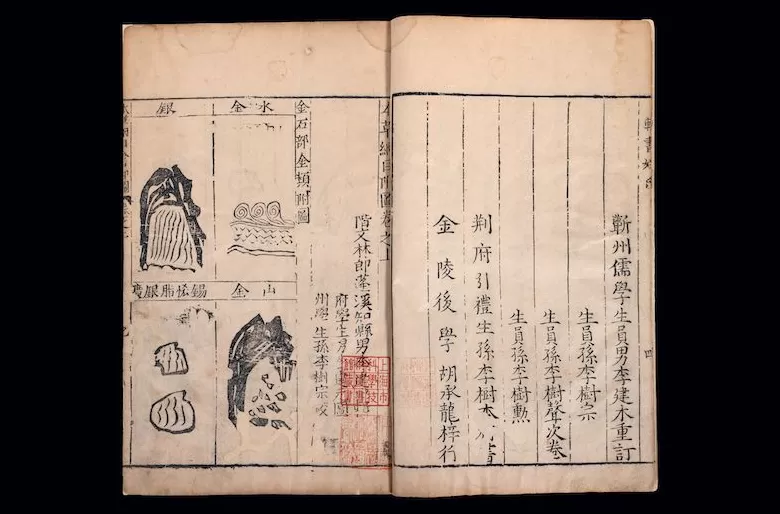 蘄州儒學生員男李建木重訂
生員孫李樹宗
生員孫李樹聲次卷
生員孫李樹勲
荆府引禮生孫李樹本 書
金陵後學 胡承龍梓行
本草綱目附圖卷之上
階文林郎蓬溪知縣男李建
府學生男 元圖
州學生孫李樹宗校
金石部金類附圖
水金
山金
銀
錫恡脂銀礦